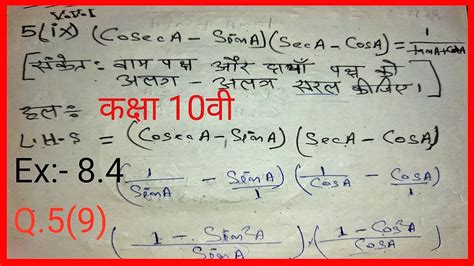 V.V.I
5(ix) (CosecA - SinA)(SecA - CosA) = 1/tanA+cotA
[संकेत:- बाम पक्ष और दायाँ पक्ष को
अलग - अलग सरल कीजिए।]
हल:- कक्षा 10वी
L.H.S = (CosecA - SinA) (SecA - CosA)
Ex:- 8.4 (1/SinA - SinA/1) (1/CosA - CosA/1)
Q.5(9) (1 - Sin²A/SinA) . (1 - Cos²A/CosA)